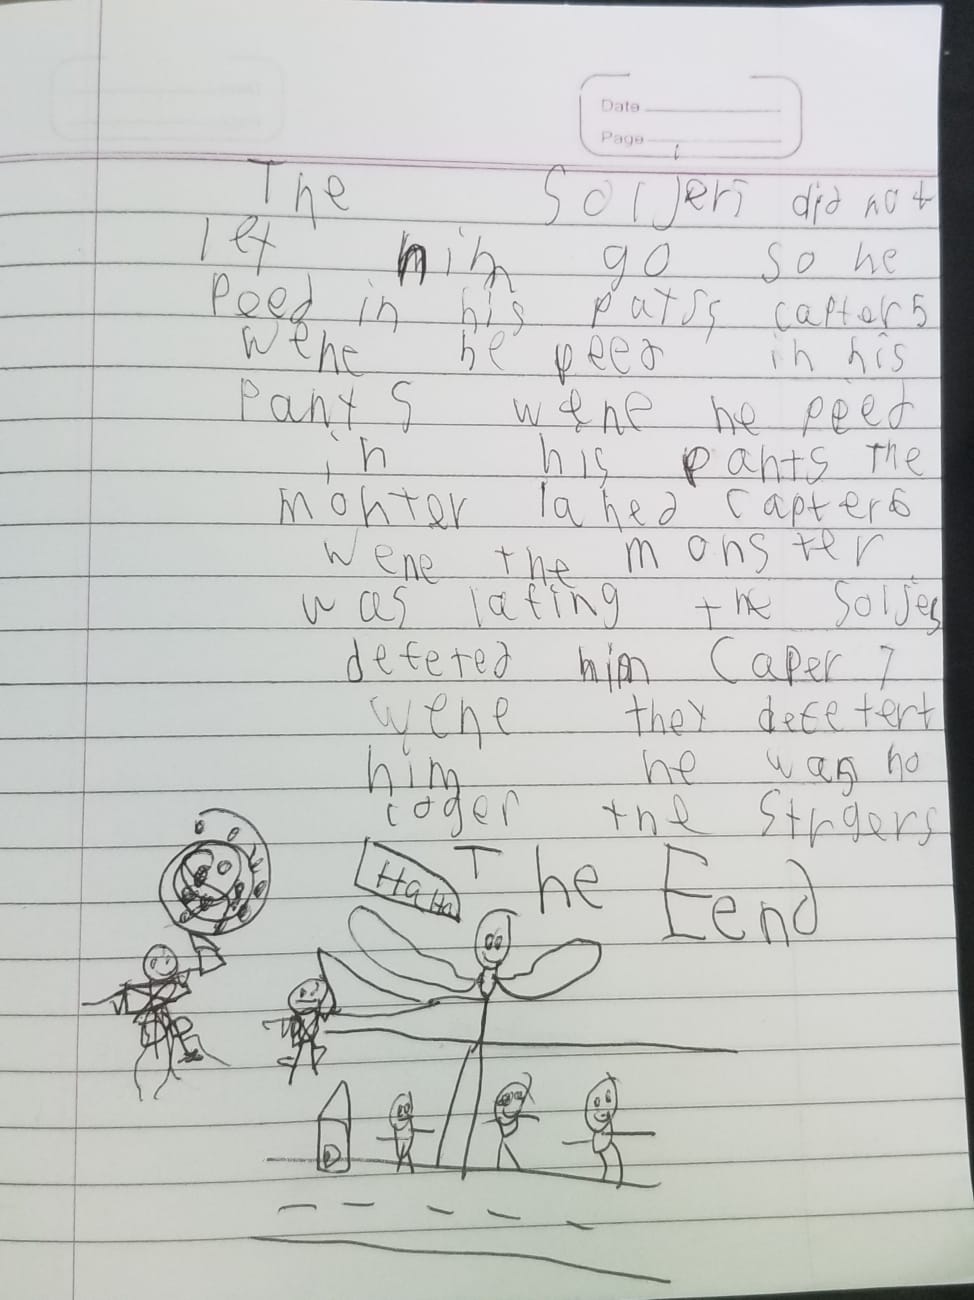 Date
Page
The Soljers did not
let him go so he
peed in his patss capter 5
wene he peed in his
pants wene he peed
in his pants the
monter lahed capter 6
wene the monster
was lafing the Soljes
defeted him Caper 7
wene they defetert
him he was no
loger the Strgers
The Eend
Ha Ha Ha